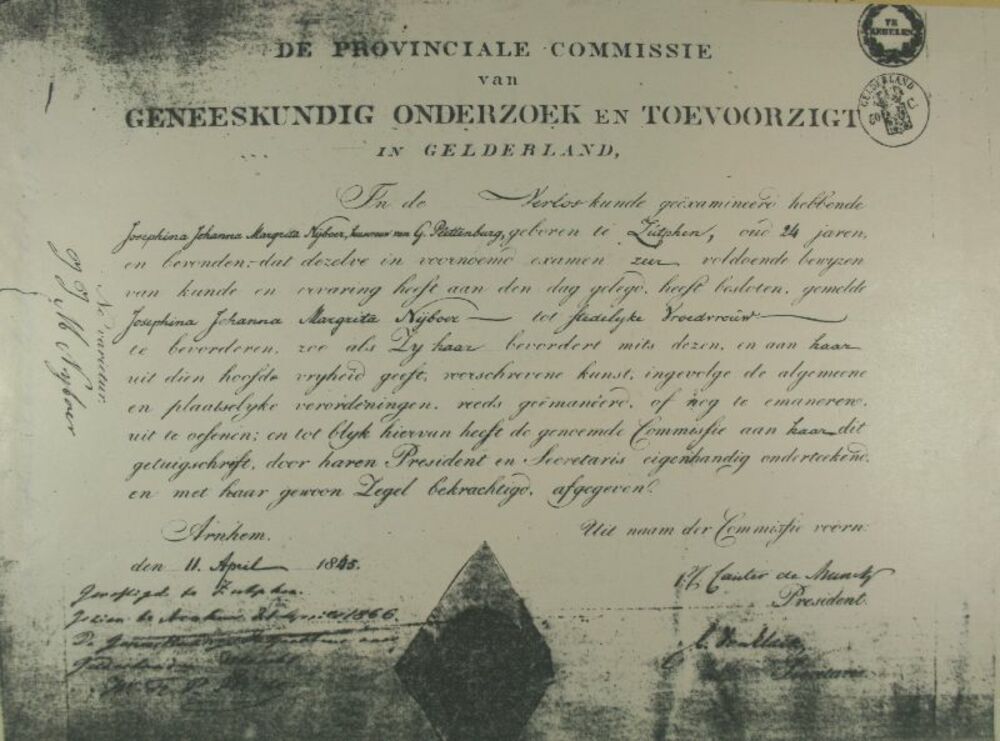 DE PROVINCIALE COMMISSIE
van
GENEESKUNDIG ONDERZOEK EN TOEVOORZIGT
IN GELDERLAND,
In de Verloskunde geëxamineerd hebbende
Josephina Johanna Margrita Nijboer, huisvrouw van G. Plettenburg, geboren te Zutphen, oud 24 jaren,
en bevonden dat dezelve in voornoemd examen zeer voldoende bewyzen
van kunde en ervaring heeft aan den dag gelegd, heeft besloten, gemelde
Josephina Johanna Margrita Nijboer tot stedelyke Vroedvrouw
te bevorderen, zoo als Zy haar bevordert mits dezen, en aan haar
uit dien hoofde vryheid geeft, voorschrevene kunst, ingevolge de algemeene
en plaatselyke verordeningen, reeds geëmaneerd, of nog te emaneren,
uit te oefenen; en tot blyk hiervan heeft de genoemde Commissie aan haar dit
getuigschrift, door haren President en Secretaris eigenhandig onderteekend,
en met haar gewoon Zegel bekrachtigd, afgegeven.
Arnhem.
Uit naam der Commissie voorn:
den 11 April 1845.
Gevestigd te Zutphen.
Cauter de Munck
President.
Gezien te Arnhem 1866.
De
Secretaris
Ne varietur.
J J M Nyboer
TE
GELDERLAND